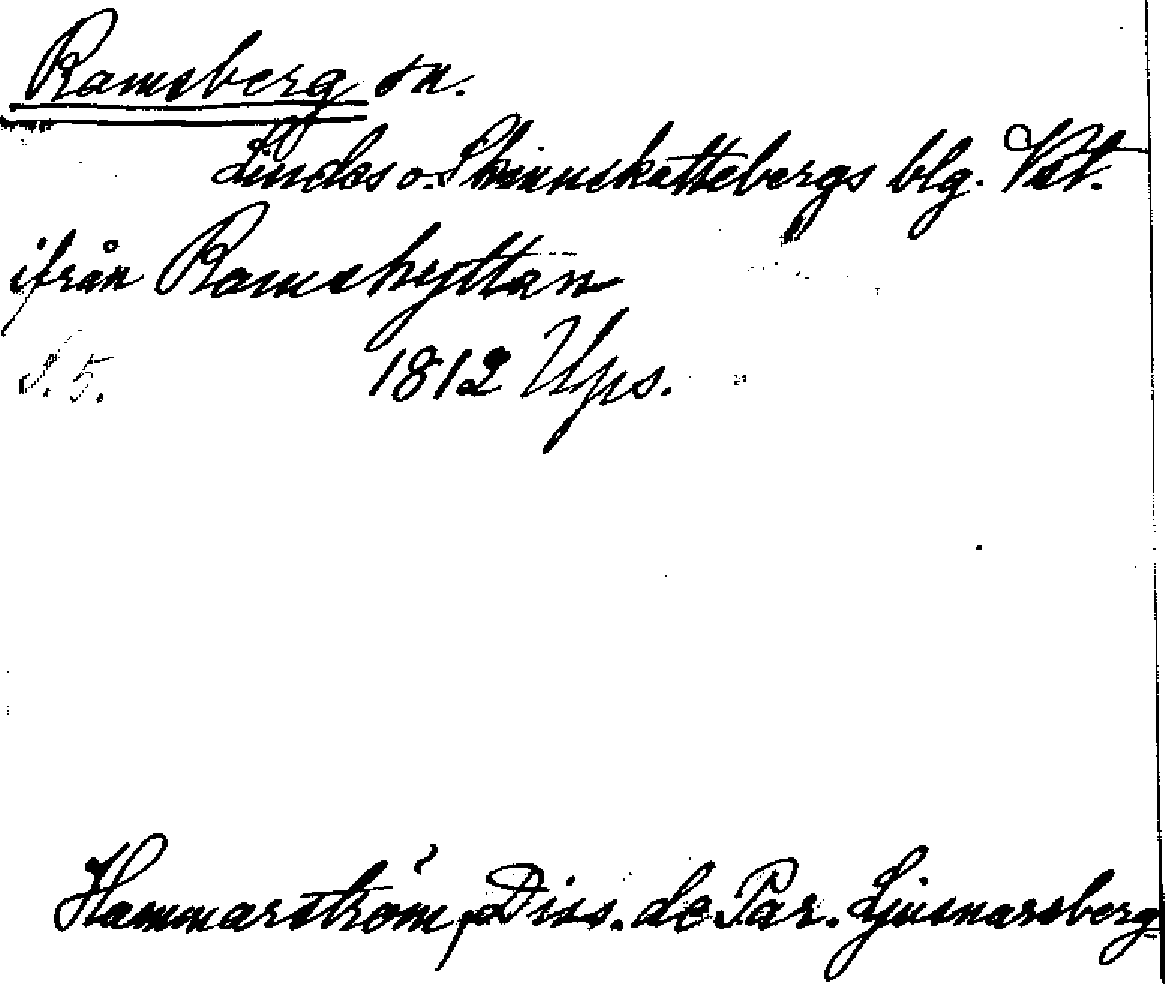 Ramsberg sn.
Lindes o. Skinnskattebergs blg. Vstl.
ifrån Ramshyttan
S. 5. 1812 Ups.
Hammarström, Diss. de Par. Ljusnarsberg